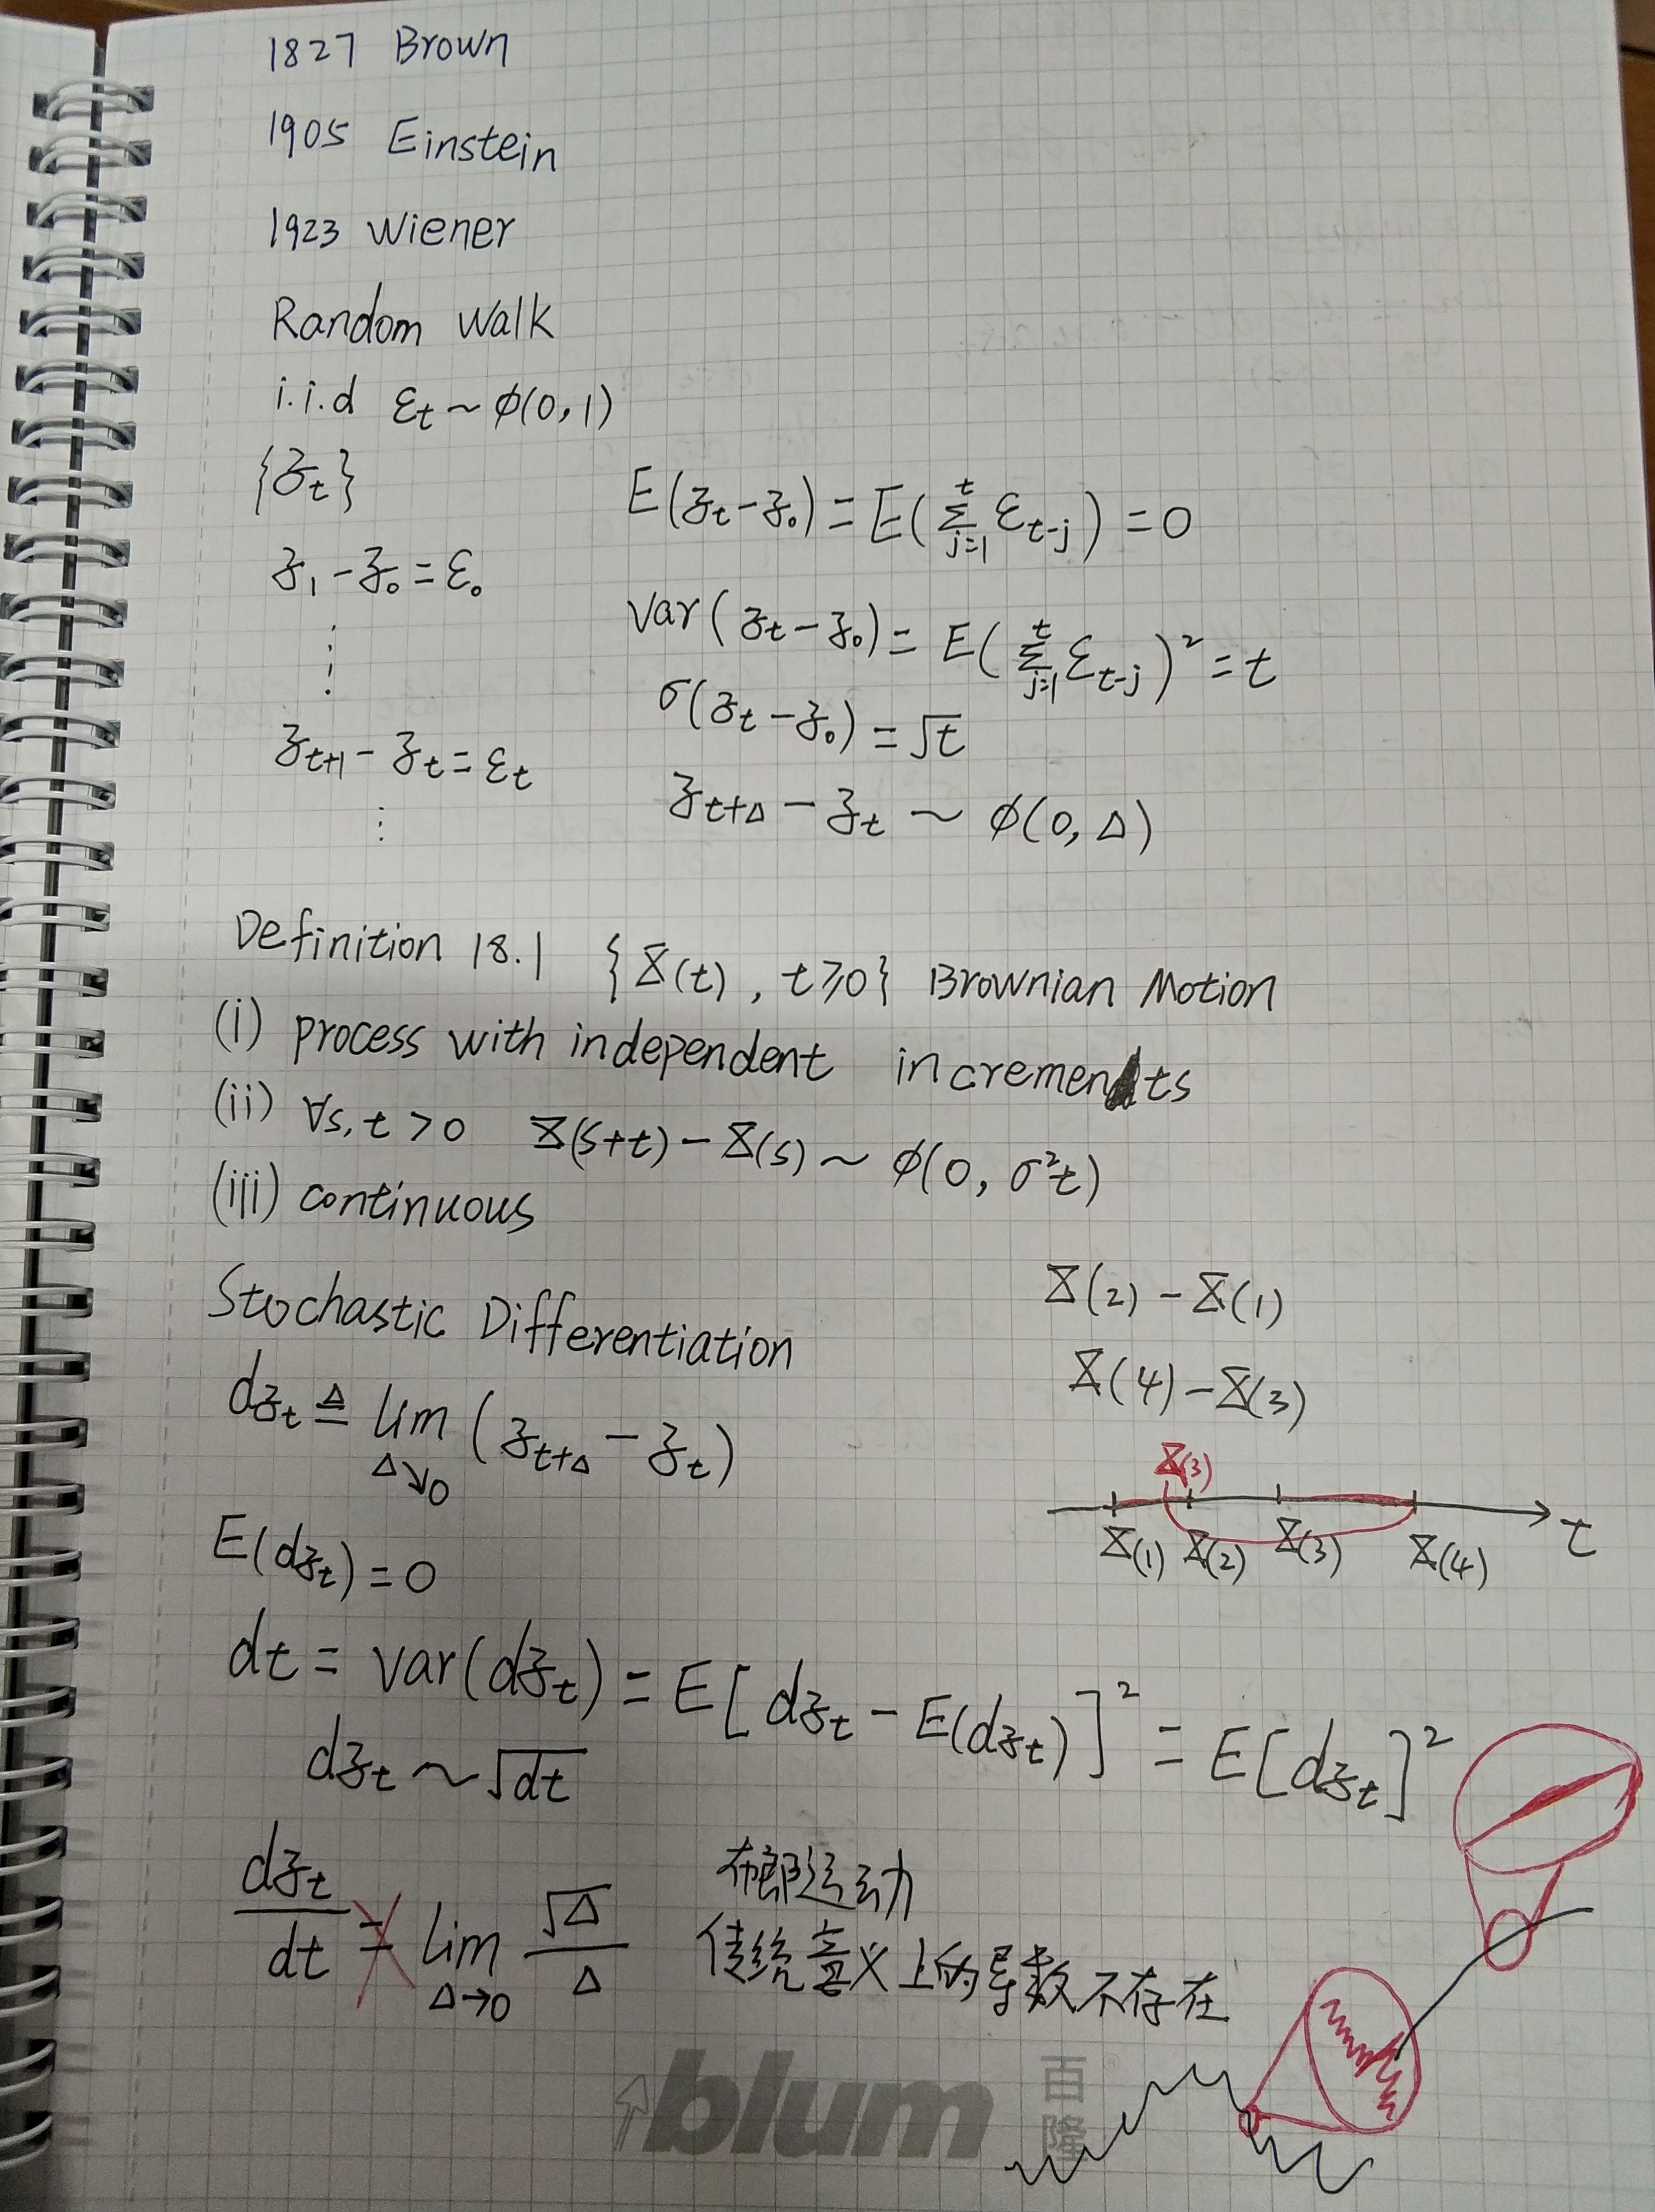 1827 Brown
1905 Einstein
1923 Wiener
Random Walk
i.i.d εt ~ φ(0,1)
{𝔷t}
𝔷1 - 𝔷0 = ε0
⋮
𝔷t+1 - 𝔷t = εt
⋮
E(𝔷t - 𝔷0) = E(∑_{j=1}^{t} ε_{t-j}) = 0
Var(𝔷t - 𝔷0) = E(∑_{j=1}^{t} ε_{t-j})² = t
σ(𝔷t - 𝔷0) = √t
𝔷t+Δ - 𝔷t ~ φ(0, Δ)
Definition 18.1 {X(t), t≥0} Brownian Motion
(i) process with independent increments
(ii) ∀s,t > 0 X(s+t) - X(s) ~ φ(0, σ²t)
(iii) continuous
Stochastic Differentiation
d𝔷t ≜ lim_{Δ↘0} (𝔷t+Δ - 𝔷t)
E(d𝔷t) = 0
X(2) - X(1)
X(4) - X(3)
X(3)
X(1) X(2) X(3) X(4) t
dt = Var(d𝔷t) = E[d𝔷t - E(d𝔷t)]² = E[d𝔷t]²
d𝔷t ~ √dt
d𝔷t/dt = lim_{Δ→0} √Δ/Δ
布郎运动
传统意义上的导数不存在
blum 百隆